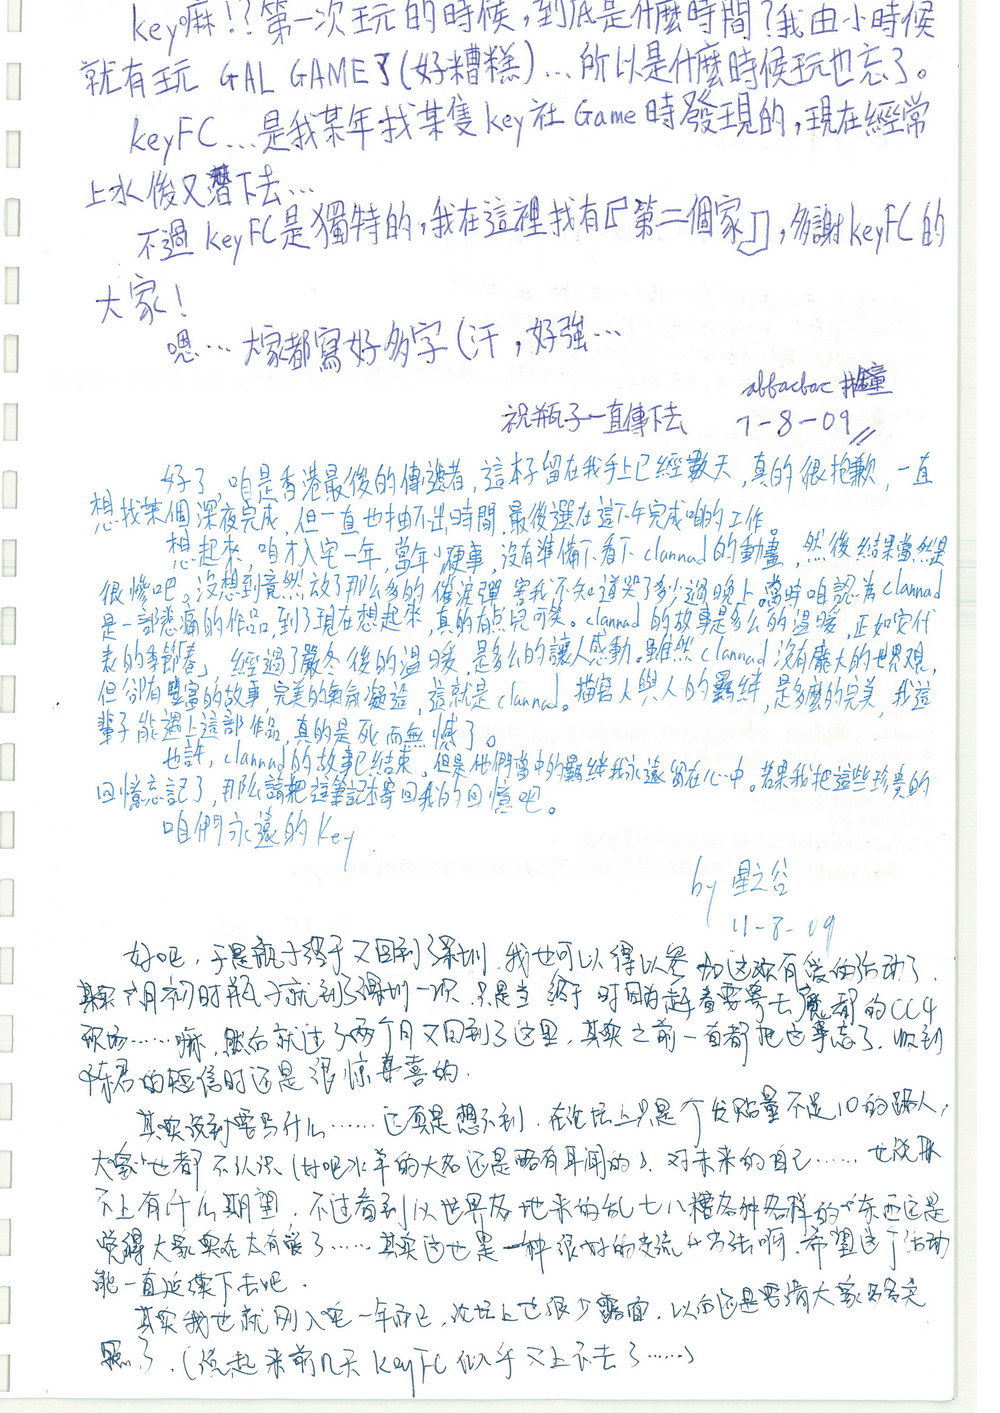 key嘛!?第一次玩的時候,到底是什麼時間?我由小時候
就有玩 GAL GAME了(好糟糕)...所以是什麼時候玩也忘了。
keyFC...是我某年找某隻key社Game時發現的,現在經常
上水後又潛下去...
不過keyFC是獨特的,我在這裡找有『第二個家』,多謝keyFC的
大家!
嗯...大家都寫好多字(汗,好強...
祝瓶子一直傳下去 7-8-09
好了,咱是香港最後的傳遞者,這本子留在我手上已經數天,真的很抱歉,一直
想找某個深夜完成,但一直也抽不出時間,最後選在這下午完成咱的工作。
想起來,咱才入宅一年,當年小硬事,沒有準備下看下clannad的動畫,然後結果當然是
很慘吧。沒想到竟然放了那么多的催淚彈,害我不知道哭了多少過晚上。當時咱認為clannad
是一部悲痛的作品,到了現在想起來,真的有点儿可笑。clannad的故事是多么的温暖,正如它代
表的季節「春」,經過了嚴冬後的温暖,是多么的讓人感動。雖然clannad沒有龐大的世界觀,
但卻有豐富的故事,完美的氣氛凝造,這就是clannad。描寫人與人的羈絆,是多麼的完美,我這
輩子能遇上這部作品,真的是死而無憾了。
也許,clannad的故事已結束,但是他們當中的羈絆我永遠留在心中。若果我把這些珍貴的
回憶忘記了,那么請把這筆記本寄回我的回憶吧。
咱們永遠的Key
by 星之谷
11-8-09
好吧,于是瓶子终于又回到了深圳,我也可以得以参加这次有爱的活动了.
其实六月初时瓶子就到了深圳一次,只是当终于时因为赶着要寄去魔都的CC4
现场……嘛,然后就过了两个月又回到了这里,其实之前一直都把这事忘了.收到
陈君的短信时还是很惊喜的.
其实说到要写什么……还真是想不到,在论坛上只是个发贴量不足10的路人,
大家也都不认识(好吧水羊的大名还是略有耳闻的).对未来的自己……也说
不上有什么期望,不过看到从世界各地来的乱七八糟各种各样的东西还是
觉得大家实在太有爱了……其实这也是一种很好的交流方法啊.希望这个活动
能一直延续下去吧.
其实我也就刚入宅一年而已,论坛上也很少露面,以后还是要请大家多多关
照了.(说起来前几天KeyFC似乎又上不去了……)